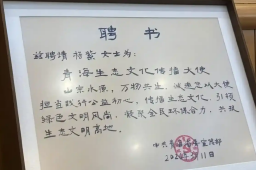 聘书
兹聘请 女士为:
青海生态文化传播大使
山宗水源,万物共生,诚邀您以大使
担当践行公益初心,传播生态文化,引领
绿色文明风尚,凝聚全民环保合力,共筑
生态文明高地。
中共青海省 宣传部